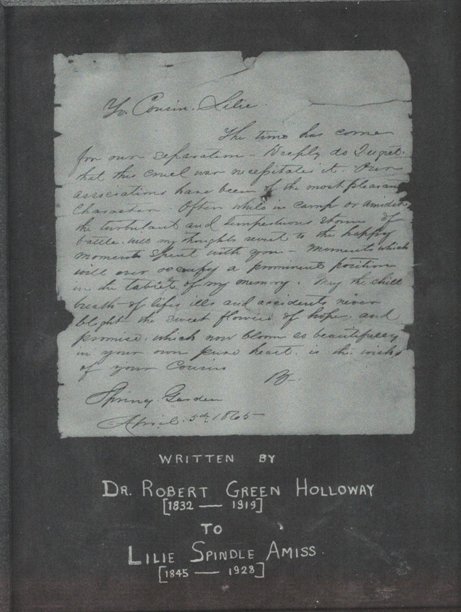 To Cousin Lilie.
The time has come
for our separation - Deeply do I regret
that this cruel war necessitates it. Our
associations have been of the most pleasant
character. Often while in camp or amidst
the turbulant and tempestuous storm of
battle will my thoughts revert to the happy
moments spent with you - moments which
will ever occupy a prominent position
in the tablets of my memory. May the chill
breath of lifes ills and accidents never
blight the sweet flowers of hope, and
promise, which now bloom so beautifully
in your own pure heart is the wish
of your Cousin
Spring Garden
April 5th, 1865
WRITTEN BY
DR. ROBERT GREEN HOLLOWAY
[1832 — 1919]
TO
LILIE SPINDLE AMISS.
[1845 — 1928]